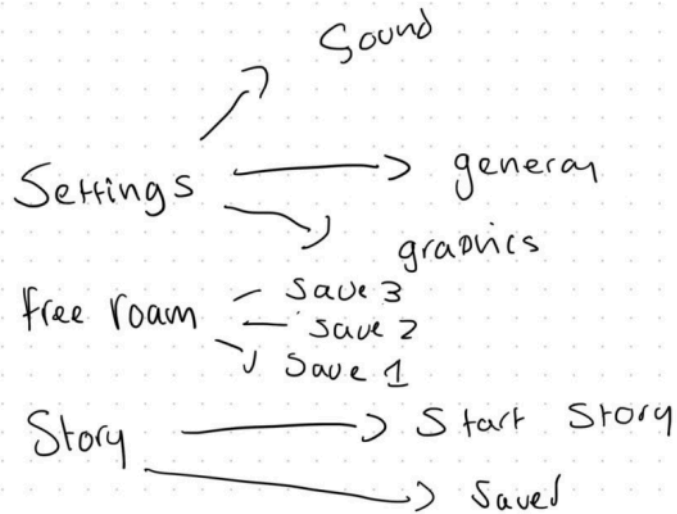 Sound
Settings general
graphics
free roam save 3
save 2
save 1
Story Start Story
Saved